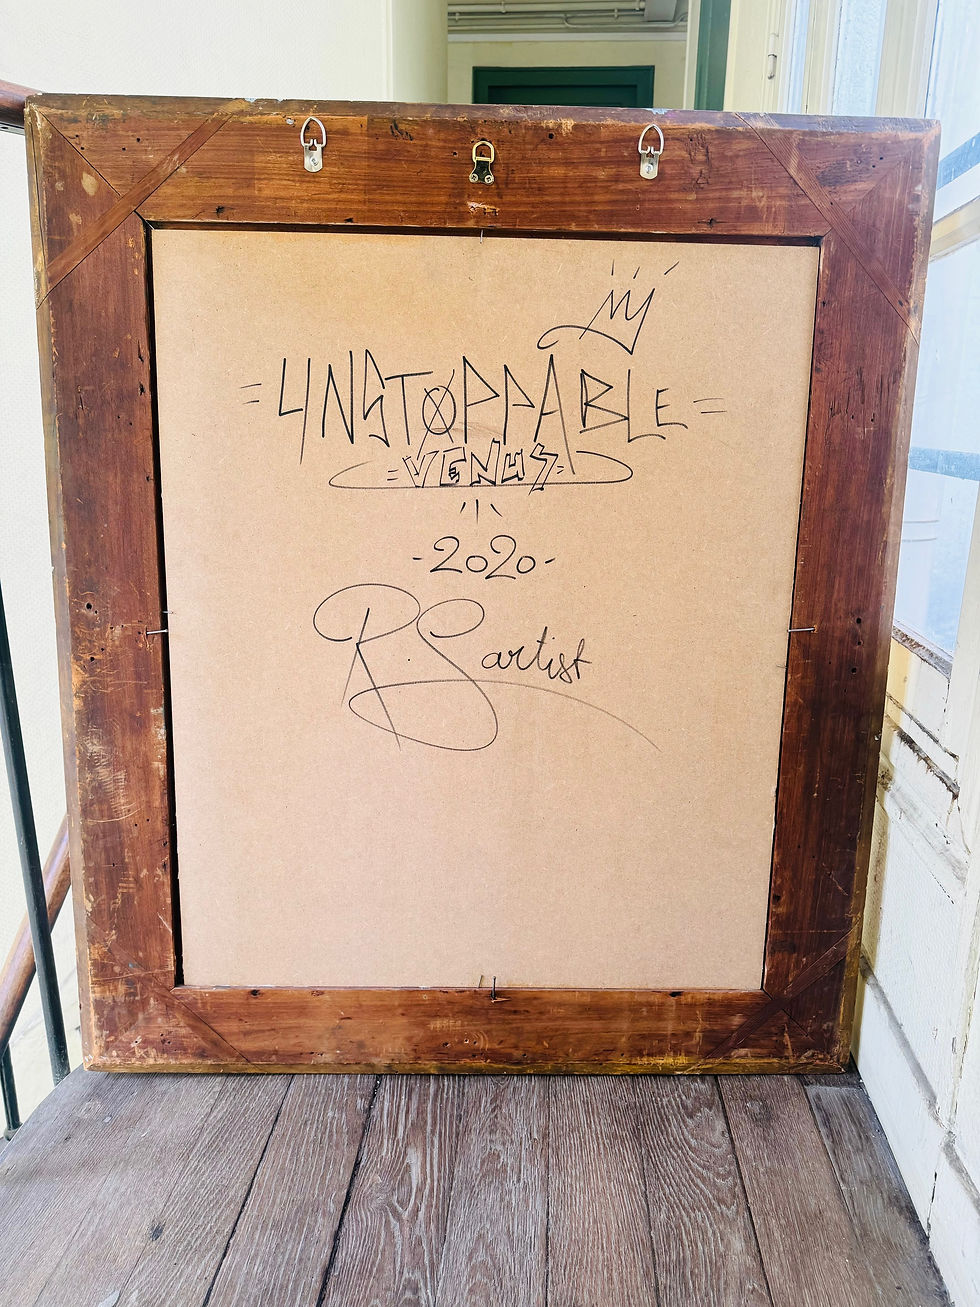 = UNSTOPPABLE =
= VENUS =
- 2020 -
RS artist